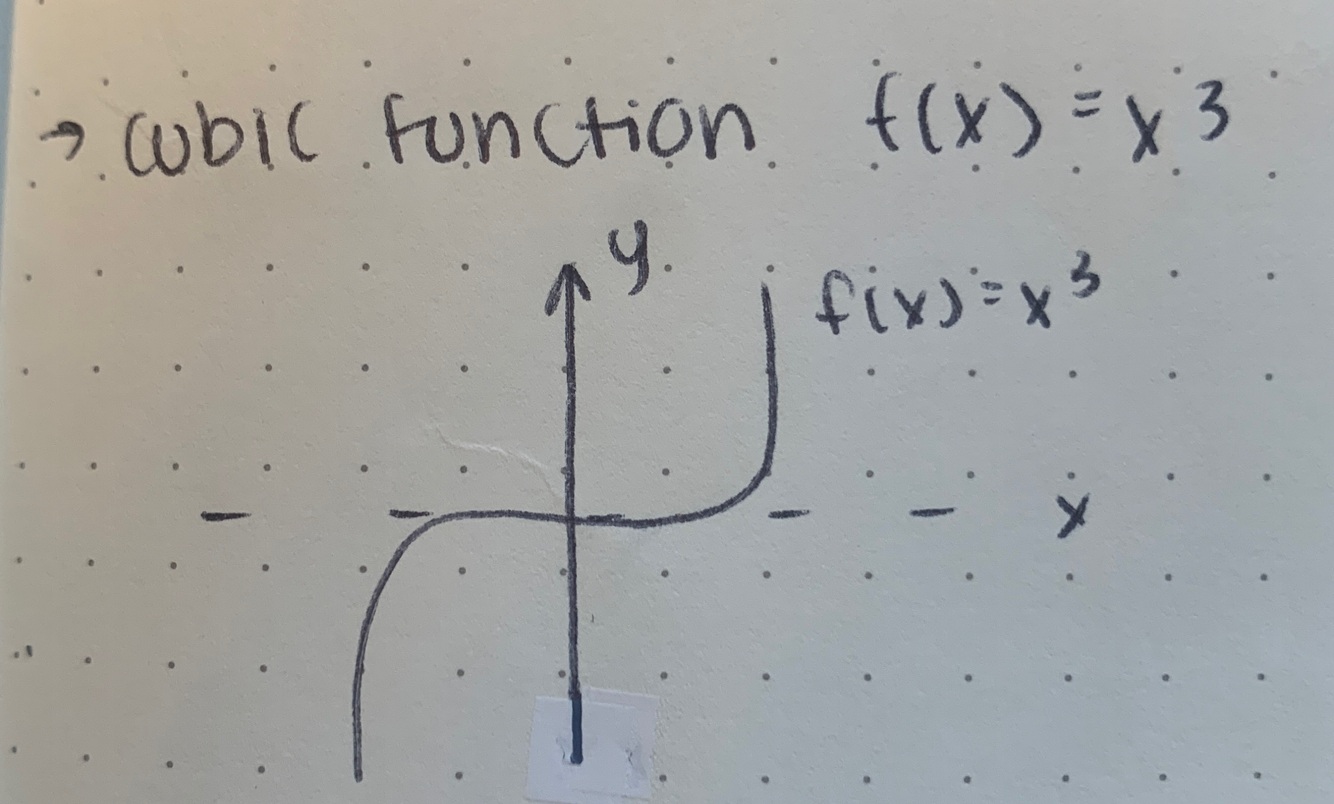 → cubic function f(x) = x³
y
f(x) = x³
x